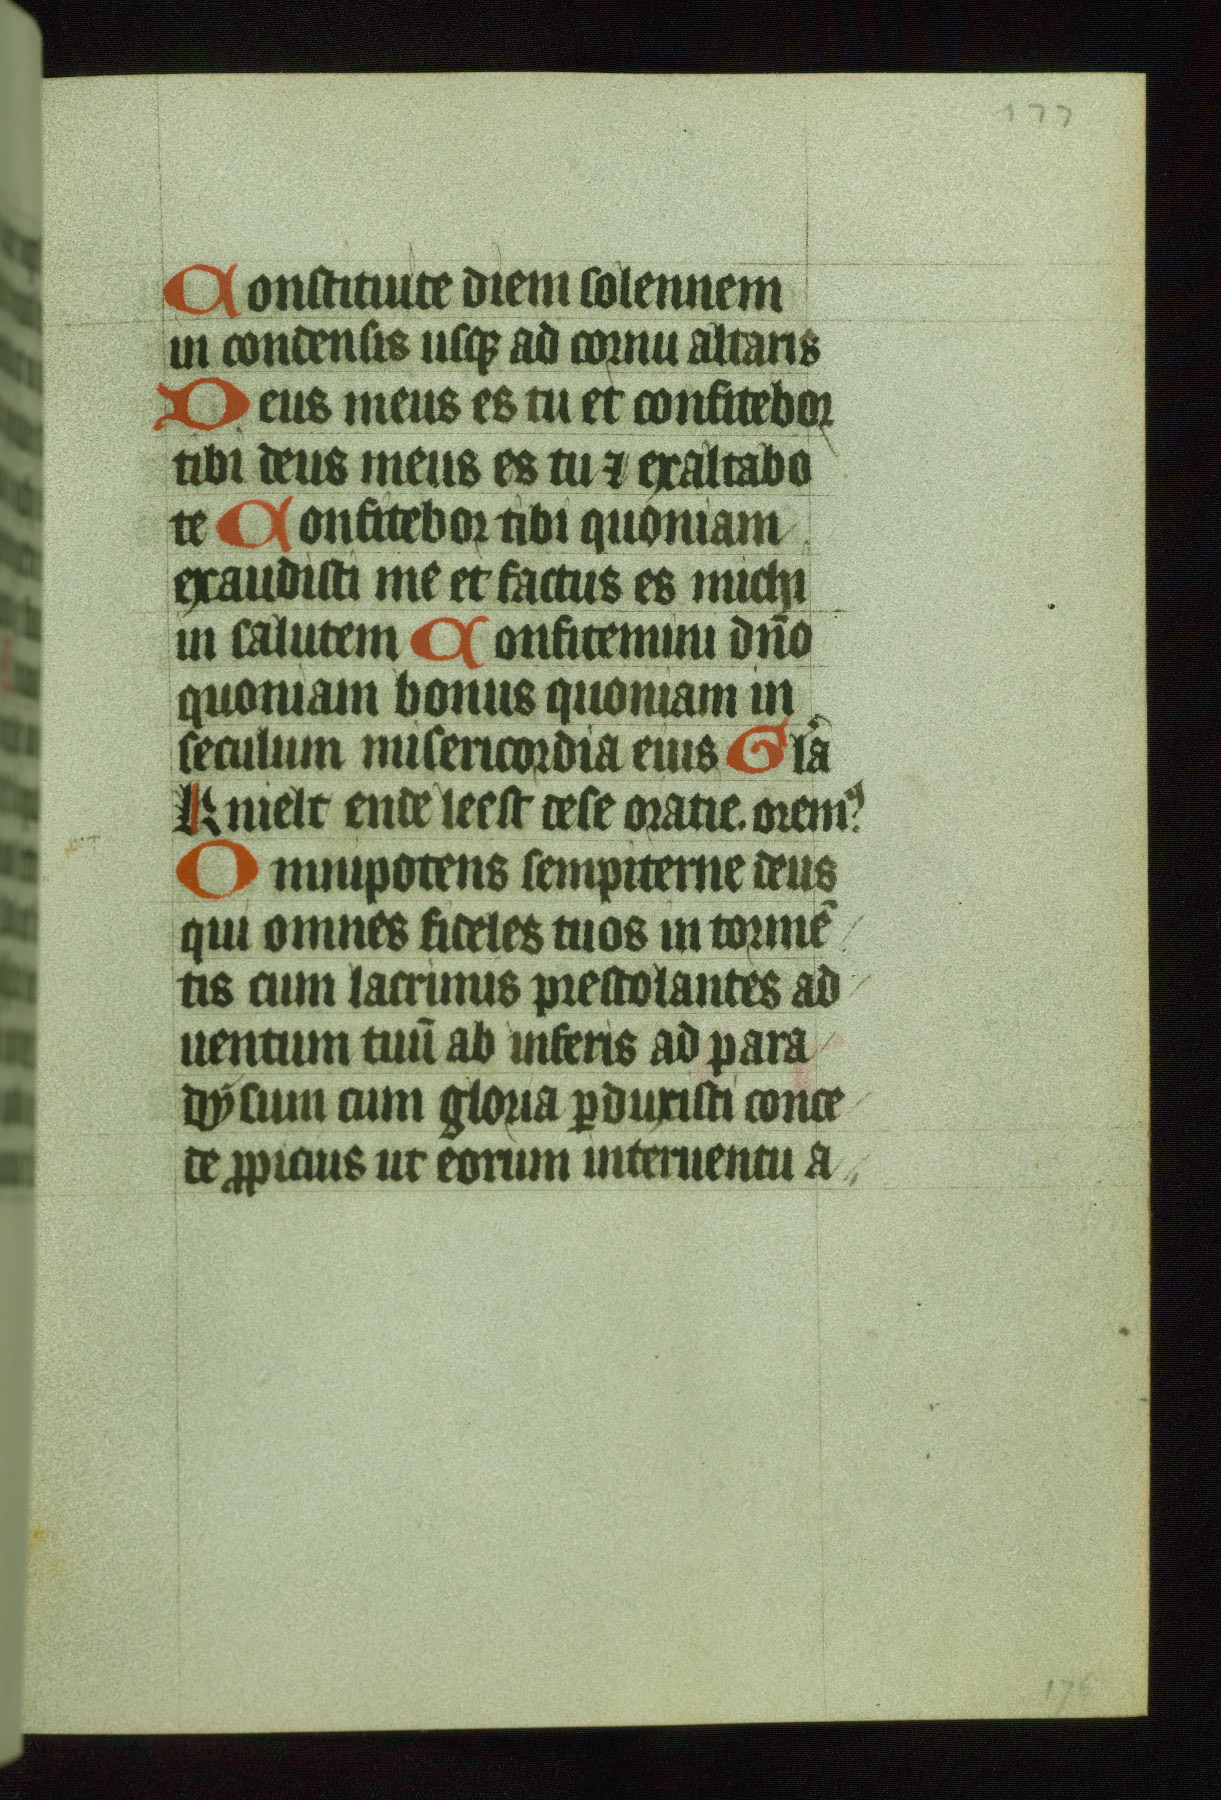 177
Constitiute diem solennem
in condensis usqꝫ ad cornu altaris
Deus meus es tu et confitebor
tibi deus meus es tu ⁊ exaltabo
te Confitebor tibi quoniam
exaudisti me et factus es michi
in salutem Confitemini dn̄o
quoniam bonus quoniam in
seculum misericordia eius Gla
Knielt ende leest dese oratie. orem⁹
Omnipotens sempiterne deus
qui omnes fideles tuos in tormē
tis cum lacrimis prestolantes ad
uentum tuū ab inferis ad para
dÿsum cum gloria ꝑduxisti conce
de ꝓpicius ut eorum interuentu a
176